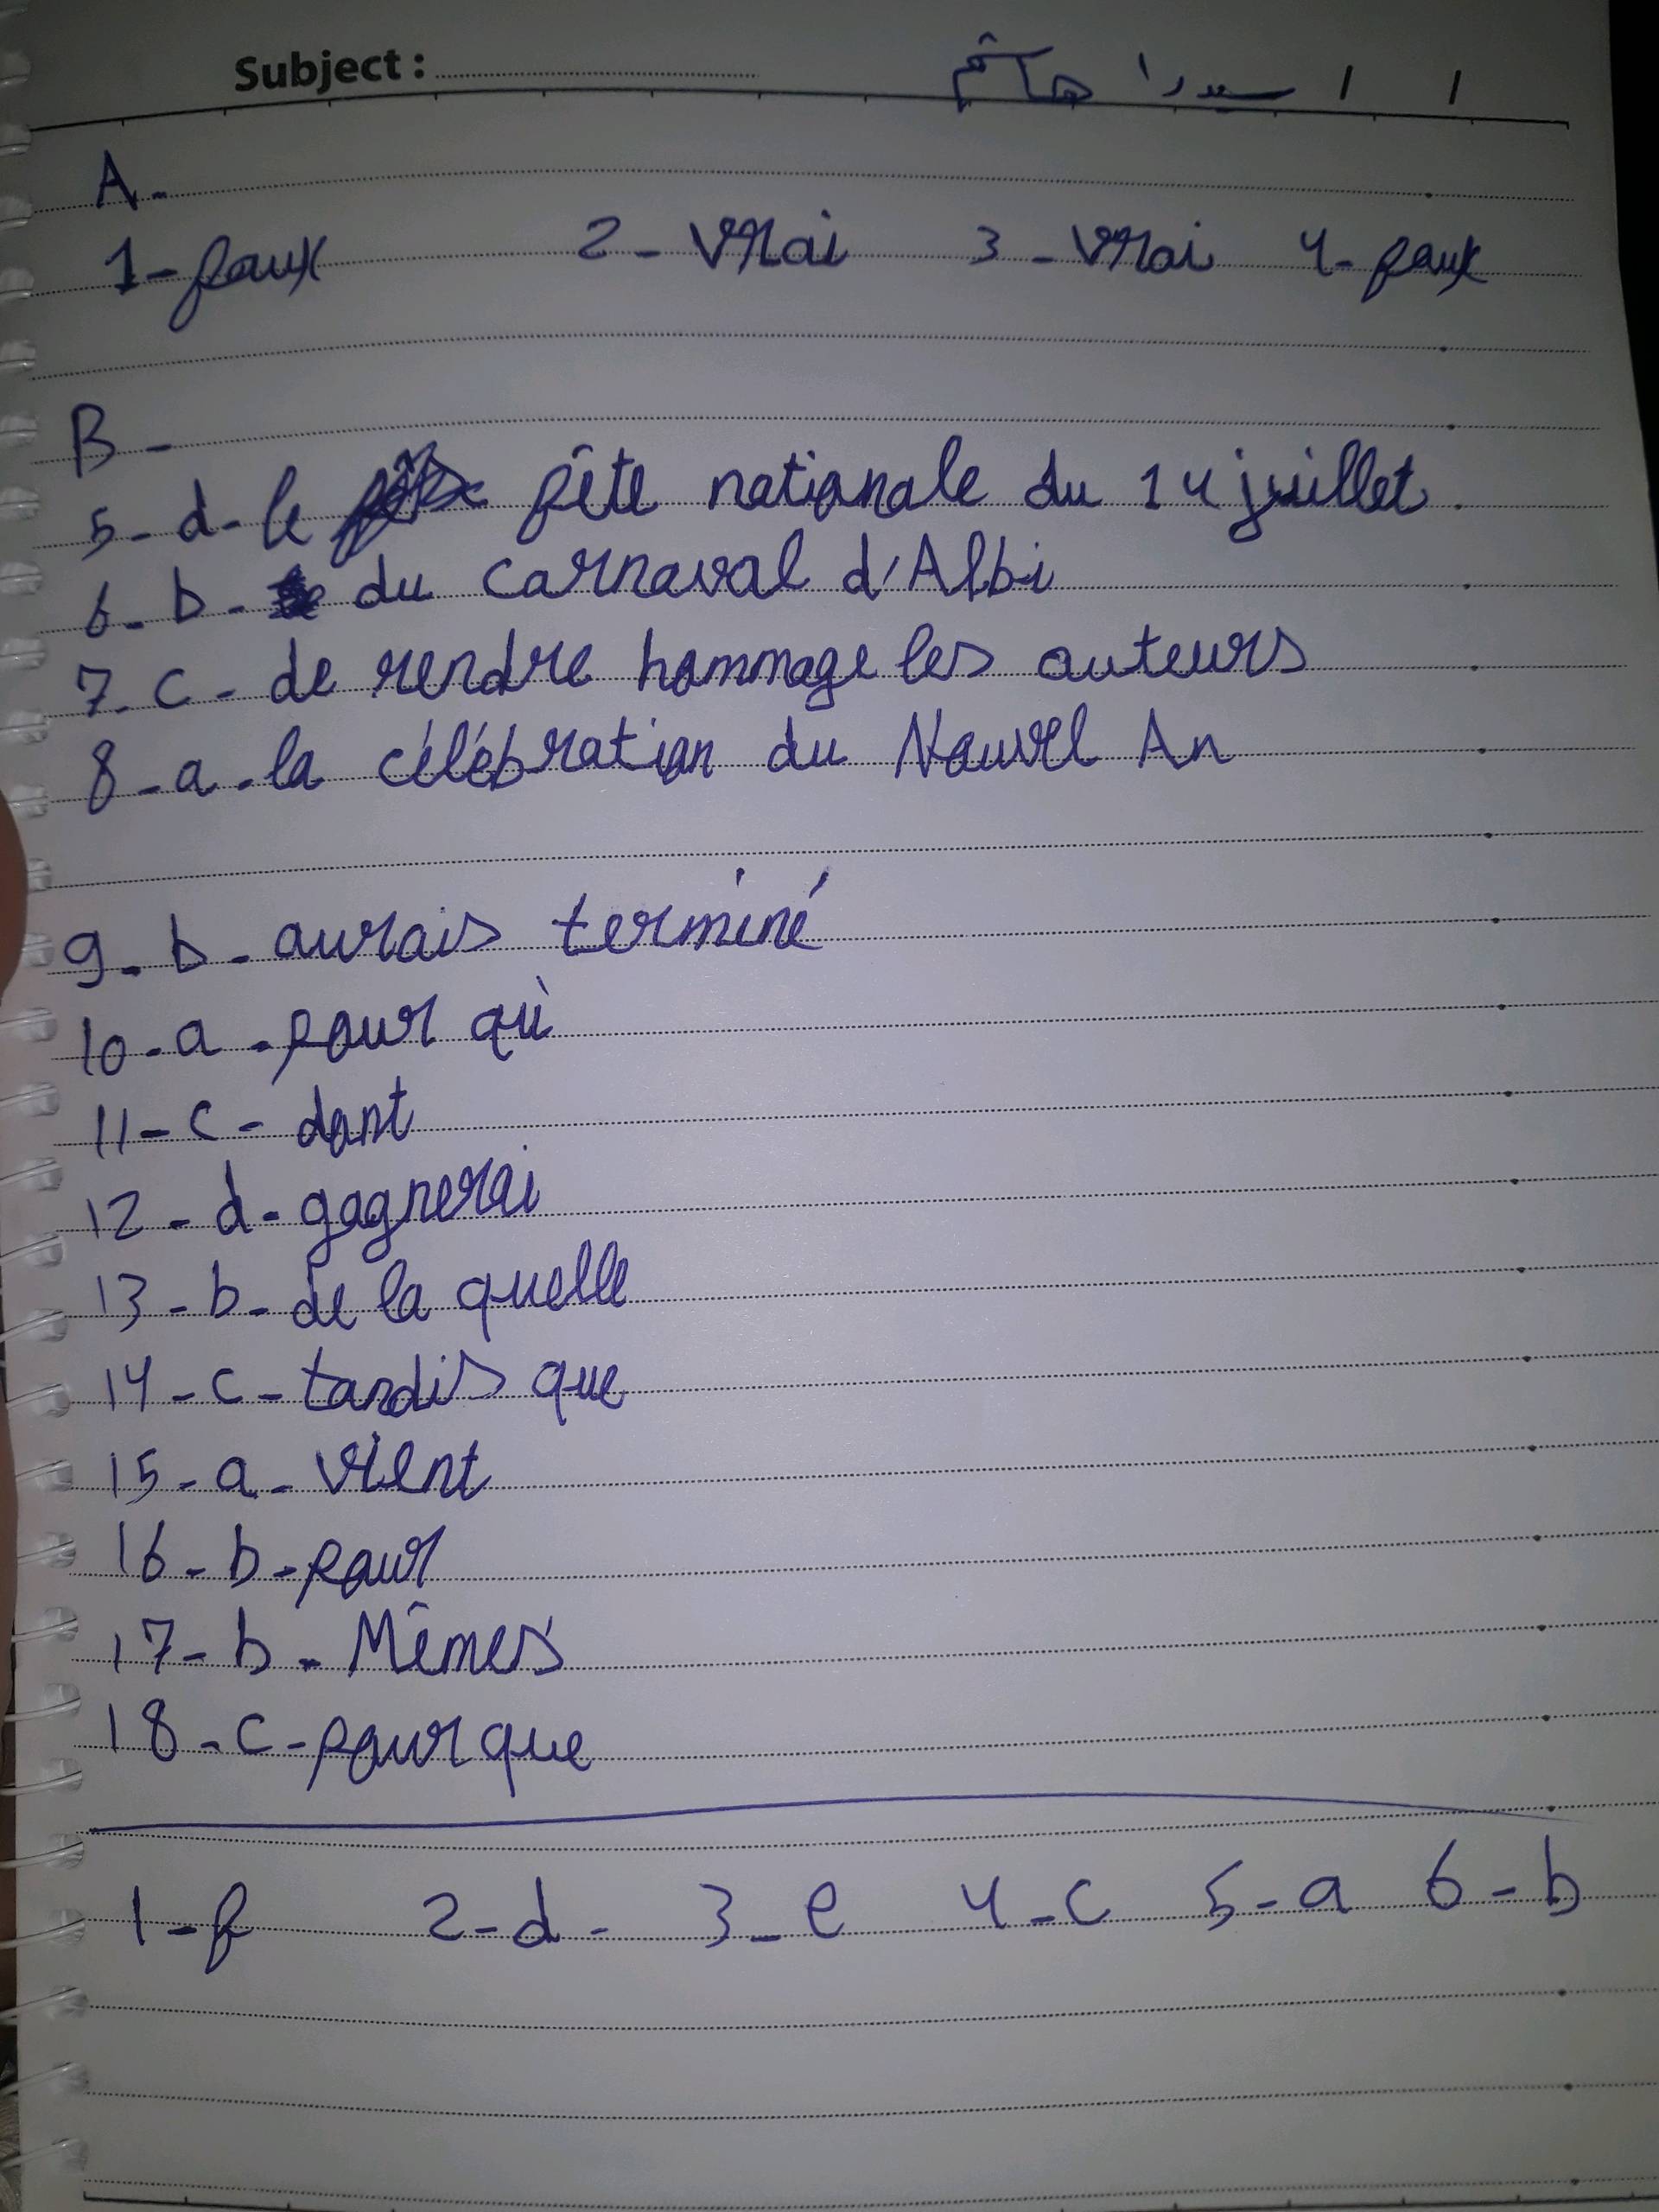 Subject :
سيدرا هاشم / /
A-
1- faux 2- Vrai 3- Vrai 4- faux
B-
5- d- le fête nationale du 14 juillet.
6- b- du carnaval d'Albi
7- c- de rendre hommage les auteurs
8- a- la célébration du Nouvel An
9- b- aurais terminé
10- a- pour qui
11- c- dont
12- d- gagnerai
13- b- de la quelle
14- c- tandis que
15- a- vient
16- b- pour
17- b- Mêmes
18- c- pour que
1- f 2- d- 3- e 4- c 5- a 6- b